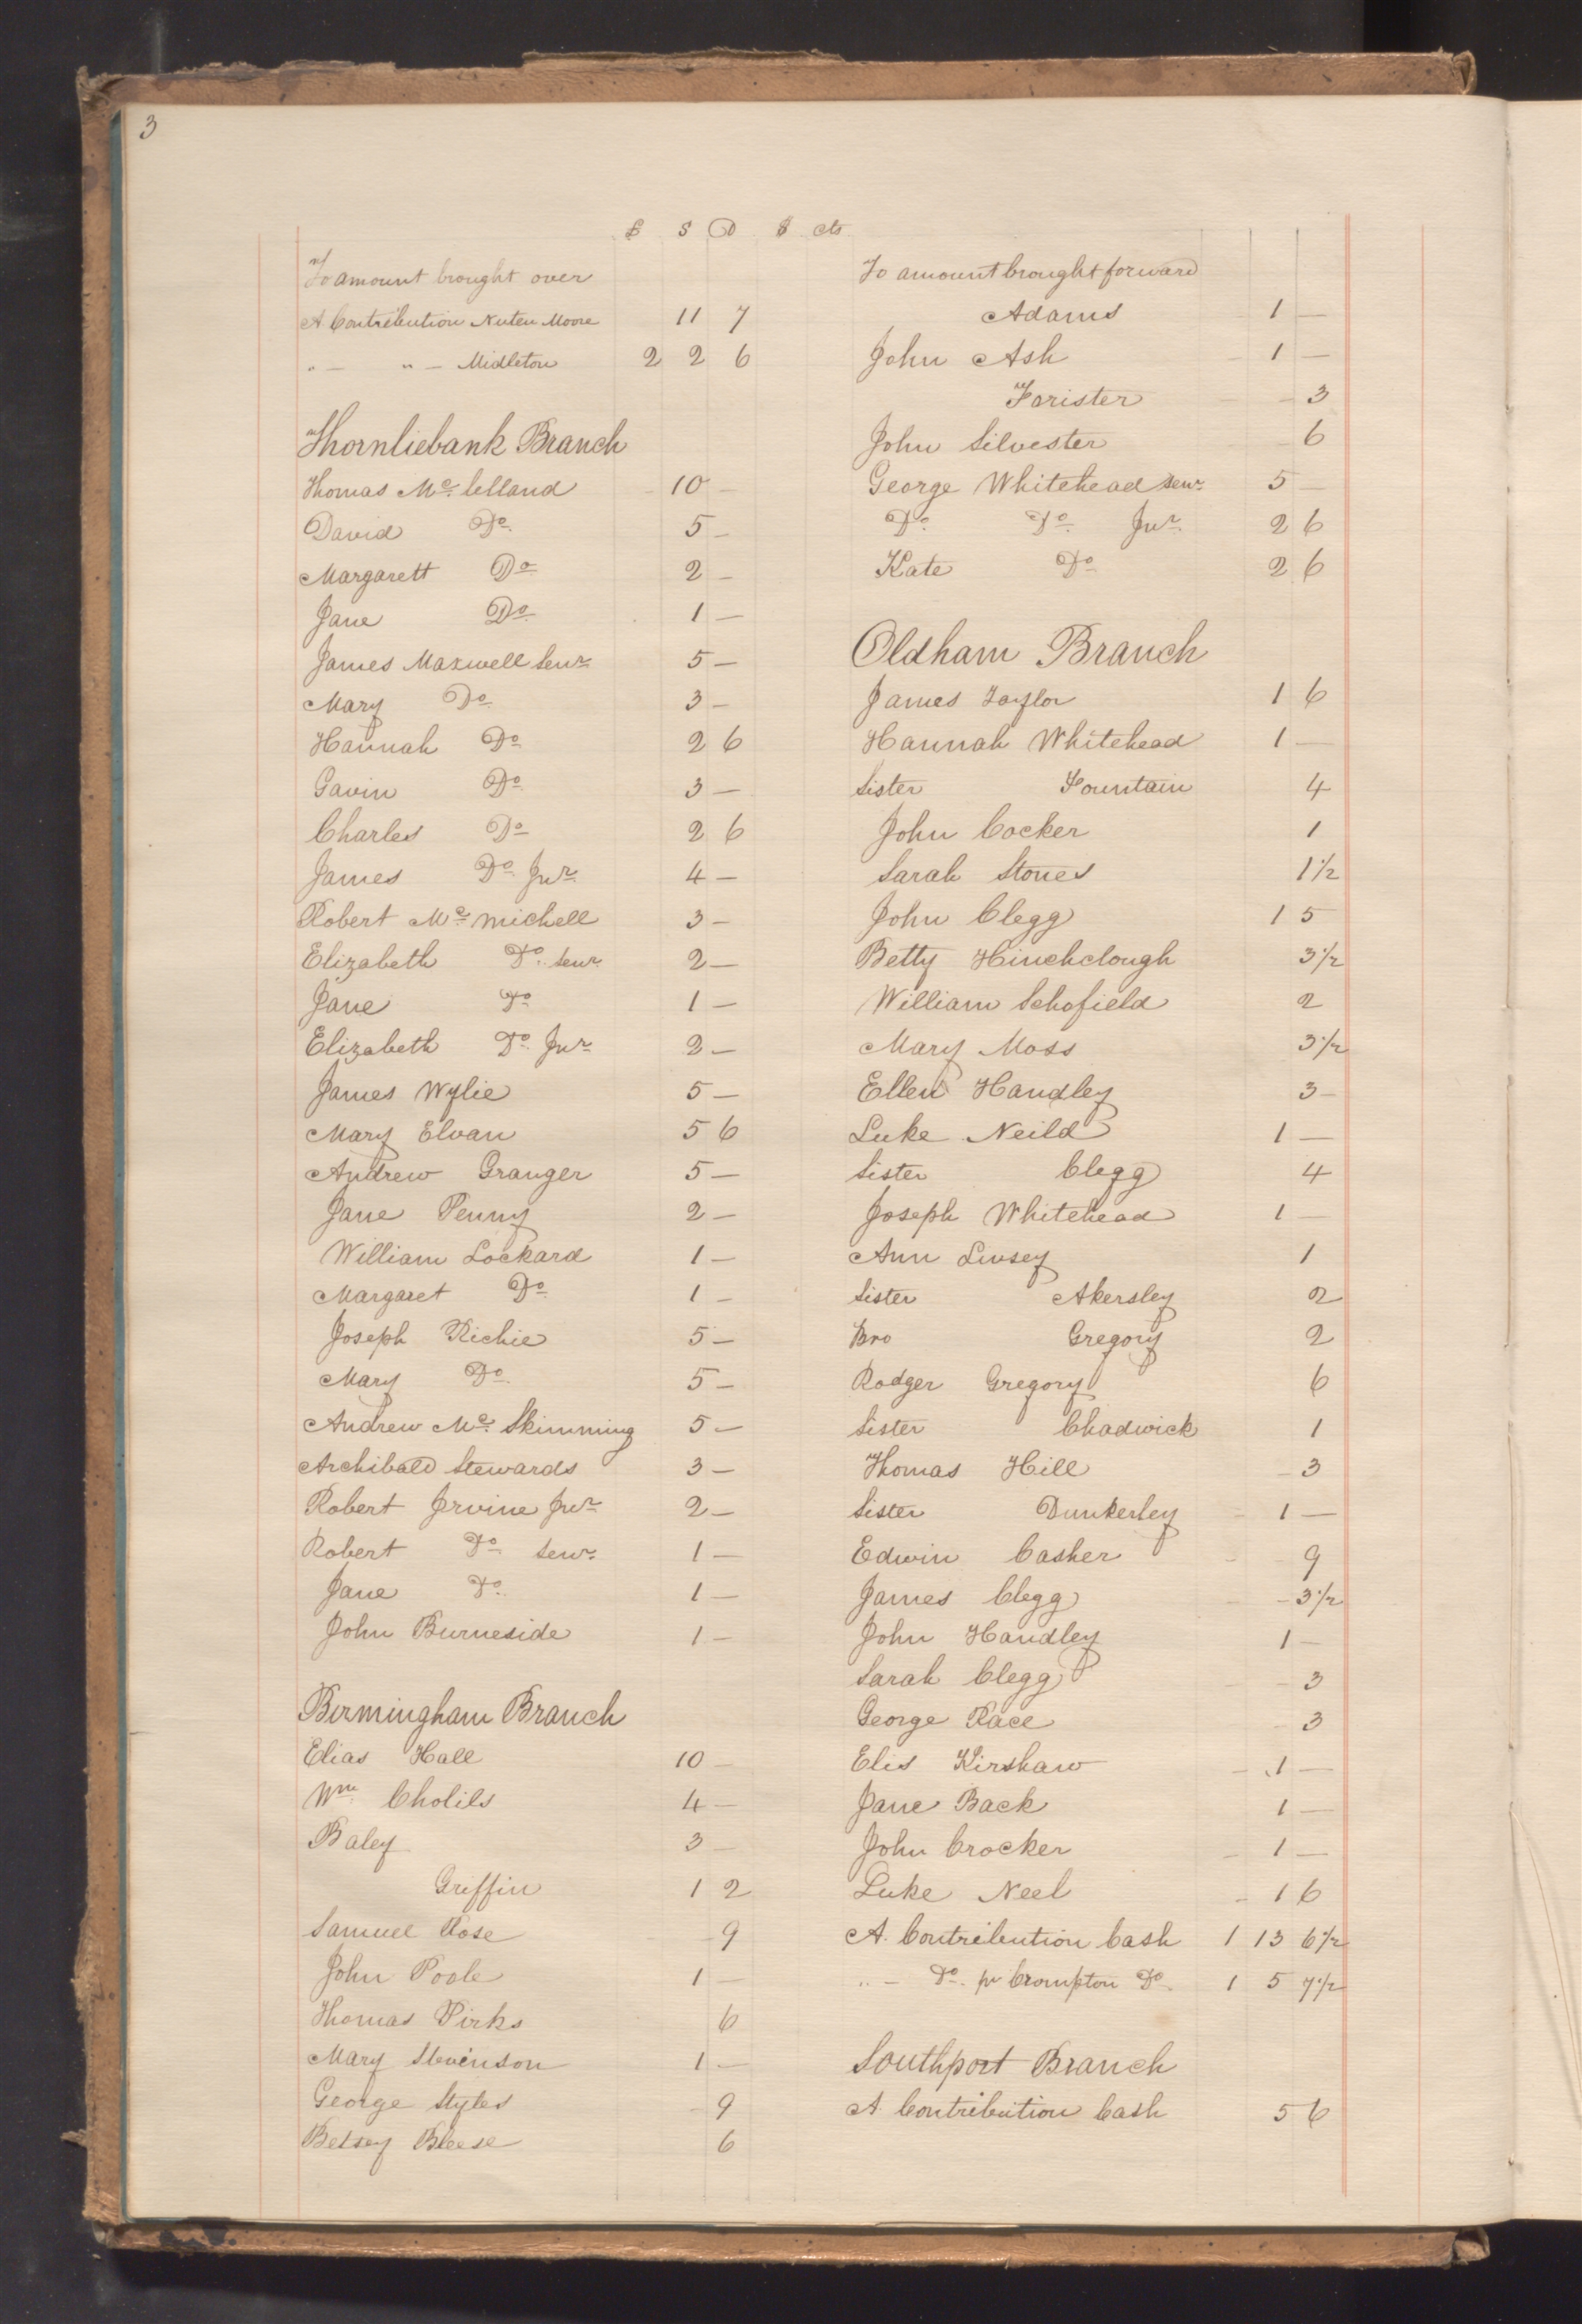 3
£ S D $ cts
To amount brought over
A Contribution Nuten Moore 11 7
" — " — Midleton 2 2 6
Thornliebank Branch
Thomas Mc Lelland 10 —
David Do 5 —
Margarett Do 2 —
Jane Do 1 —
James Maxwell Senr 5 —
Mary Do 3 —
Hannah Do 2 6
Gavin Do 3 —
Charles Do 2 6
James Do Jnr 4 —
Robert Mc michell 3 —
Elizabeth Do senr 2 —
Jane Do 1 —
Elizabeth Do Jnr 2 —
James Wylie 5 —
Mary Elvan 5 6
Andrew Granger 5 —
Jane Penny 2 —
William Lockard 1 —
Margaret Do 1 —
Joseph Richie 5 —
Mary Do 5 —
Andrew Mc Skimming 5 —
Archibald Stewards 3 —
Robert Jrvine Jnr 2 —
Robert Do senr 1 —
Jane Do 1 —
John Burneside 1 —
Birmingham Branch
Elias Hall 10 —
Wm Cholils 4 —
Baley 3 —
Griffin 1 2
Samuel Rose 9
John Poole 1 —
Thomas Pirks 6
Mary Stevinson 1 —
George Styles 9
Betsey Bleese 6
To amount brought forward
Adams 1 —
John Ash 1 —
Forister 3
John Silvester 6
George Whitehead senr 5 —
Do Do Jnr 2 6
Kate Do 2 6
Oldham Branch
James Taylor 1 6
Hannah Whitehead 1 —
Sister Fountain 4
John Cocker 1
Sarah Stones 1 1/2
John Clegg 1 5
Betty Hinchclough 3 1/2
William Schofield 2
Mary Moss 3 1/2
Ellen Handley 3 —
Luke Neild 1 —
Sister Clegg 4
Joseph Whitehead 1 —
Ann Linsey 1
Sister Akersley 2
Bro Gregory 2
Rodger Gregory 6
Sister Chadwick 1
Thomas Hill 3
Sister Dunkerley 1 —
Edwin Casher 9
James Clegg 3 1/2
John Handley 1 —
Sarah Clegg 3
George Race 3
Elis Kirshaw 1 —
Jane Back 1 —
John Crocker 1 —
Luke Neel 1 6
A. Contribution Cash 1 13 6 1/2
" — Do pr Crompton Do 1 5 7 1/2
Southport Branch
A Contribution Cash 5 6